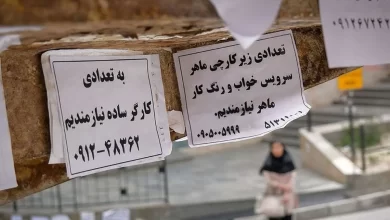 ۰۹۱۲۶۷۲۴
به تعدادی
کارگر ساده نیازمندیم
۰۹۱۲-۴۸۳۶۲
تعدادی زیر کارچی ماهر
سرویس خواب و رنگ کار
ماهر نیازمندیم.
۰۹۰۵۰۰۵۹۹۹